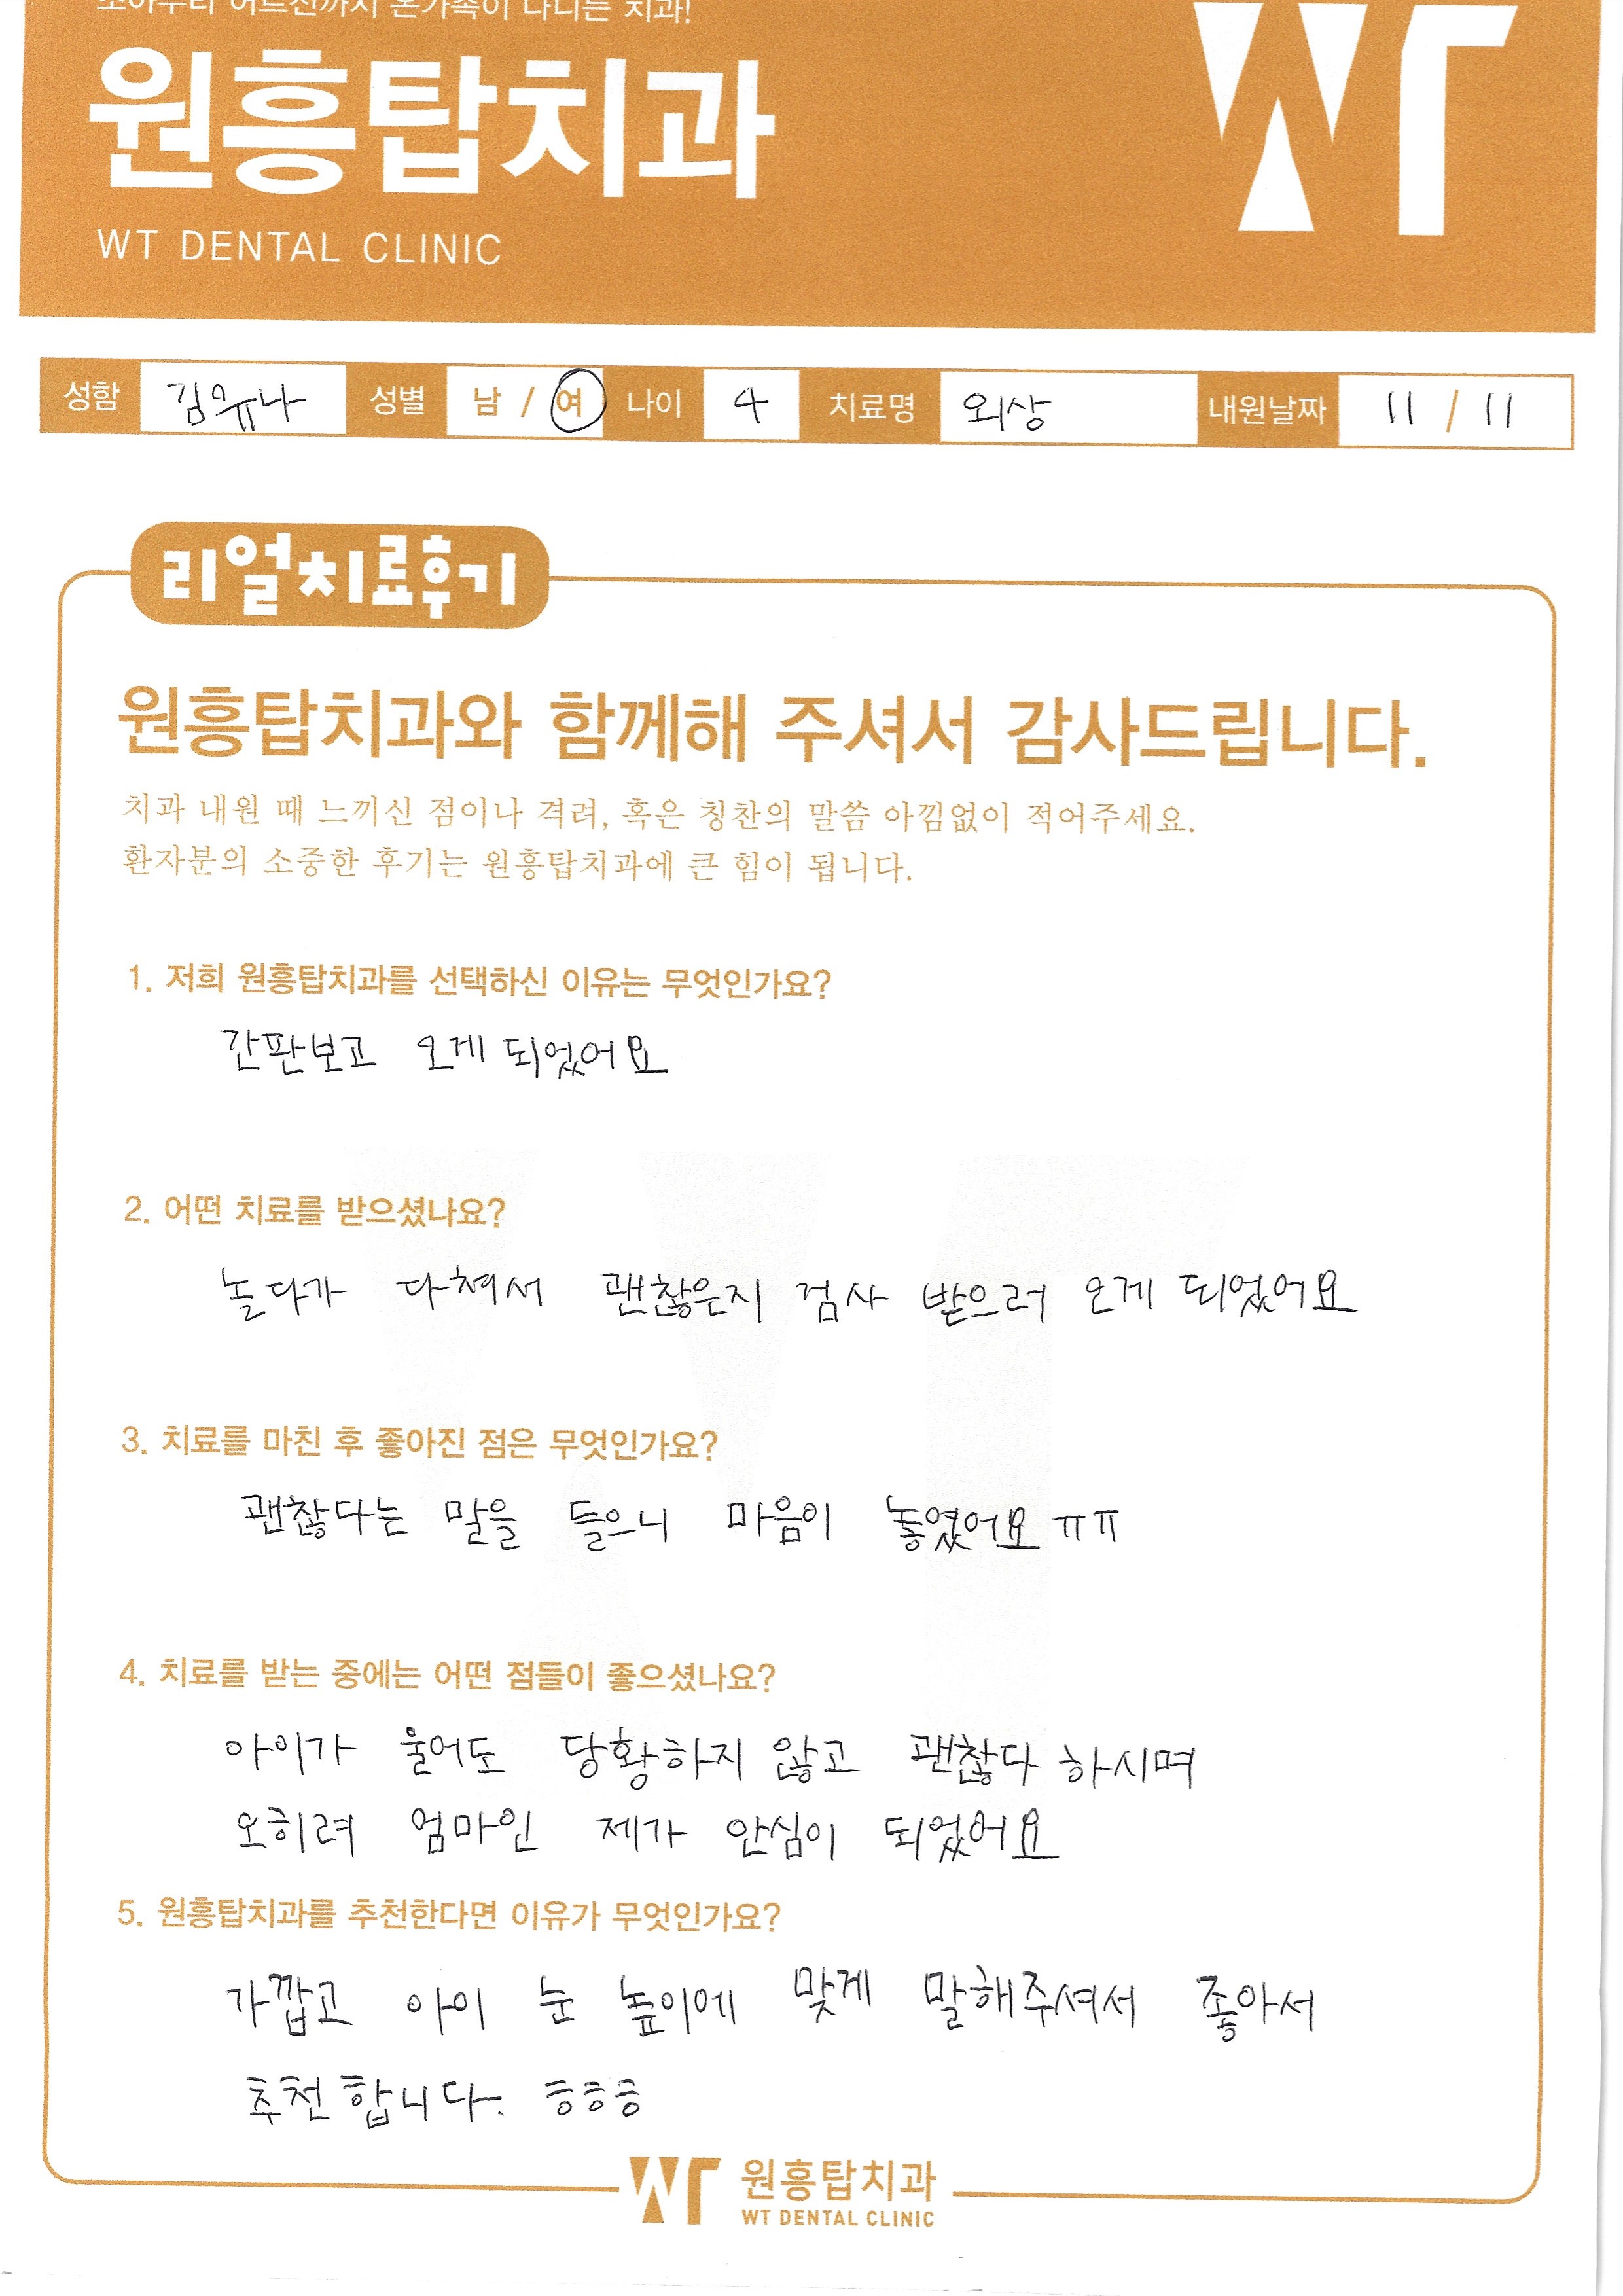 소아부터 어르신까지 온가족이 다니는 치과!
원흥탑치과
WT DENTAL CLINIC
WT
성함 김유나 성별 남 / 여 나이 4 치료명 외상 내원날짜 11 / 11
리얼치료후기
원흥탑치과와 함께해 주셔서 감사드립니다.
치과 내원 때 느끼신 점이나 격려, 혹은 칭찬의 말씀 아낌없이 적어주세요.
환자분의 소중한 후기는 원흥탑치과에 큰 힘이 됩니다.
1. 저희 원흥탑치과를 선택하신 이유는 무엇인가요?
간판보고 오게 되었어요
2. 어떤 치료를 받으셨나요?
놀다가 다쳐서 괜찮은지 검사 받으러 오게 되었어요
3. 치료를 마친 후 좋아진 점은 무엇인가요?
괜찮다는 말을 들으니 마음이 놓였어요 ㅠㅠ
4. 치료를 받는 중에는 어떤 점들이 좋으셨나요?
아이가 울어도 당황하지 않고 괜찮다 하시며
오히려 엄마인 제가 안심이 되었어요
5. 원흥탑치과를 추천한다면 이유가 무엇인가요?
가깝고 아이 눈 높이에 맞게 말해주셔서 좋아서
추천합니다. ㅎㅎㅎ
WT 원흥탑치과
WT DENTAL CLINIC